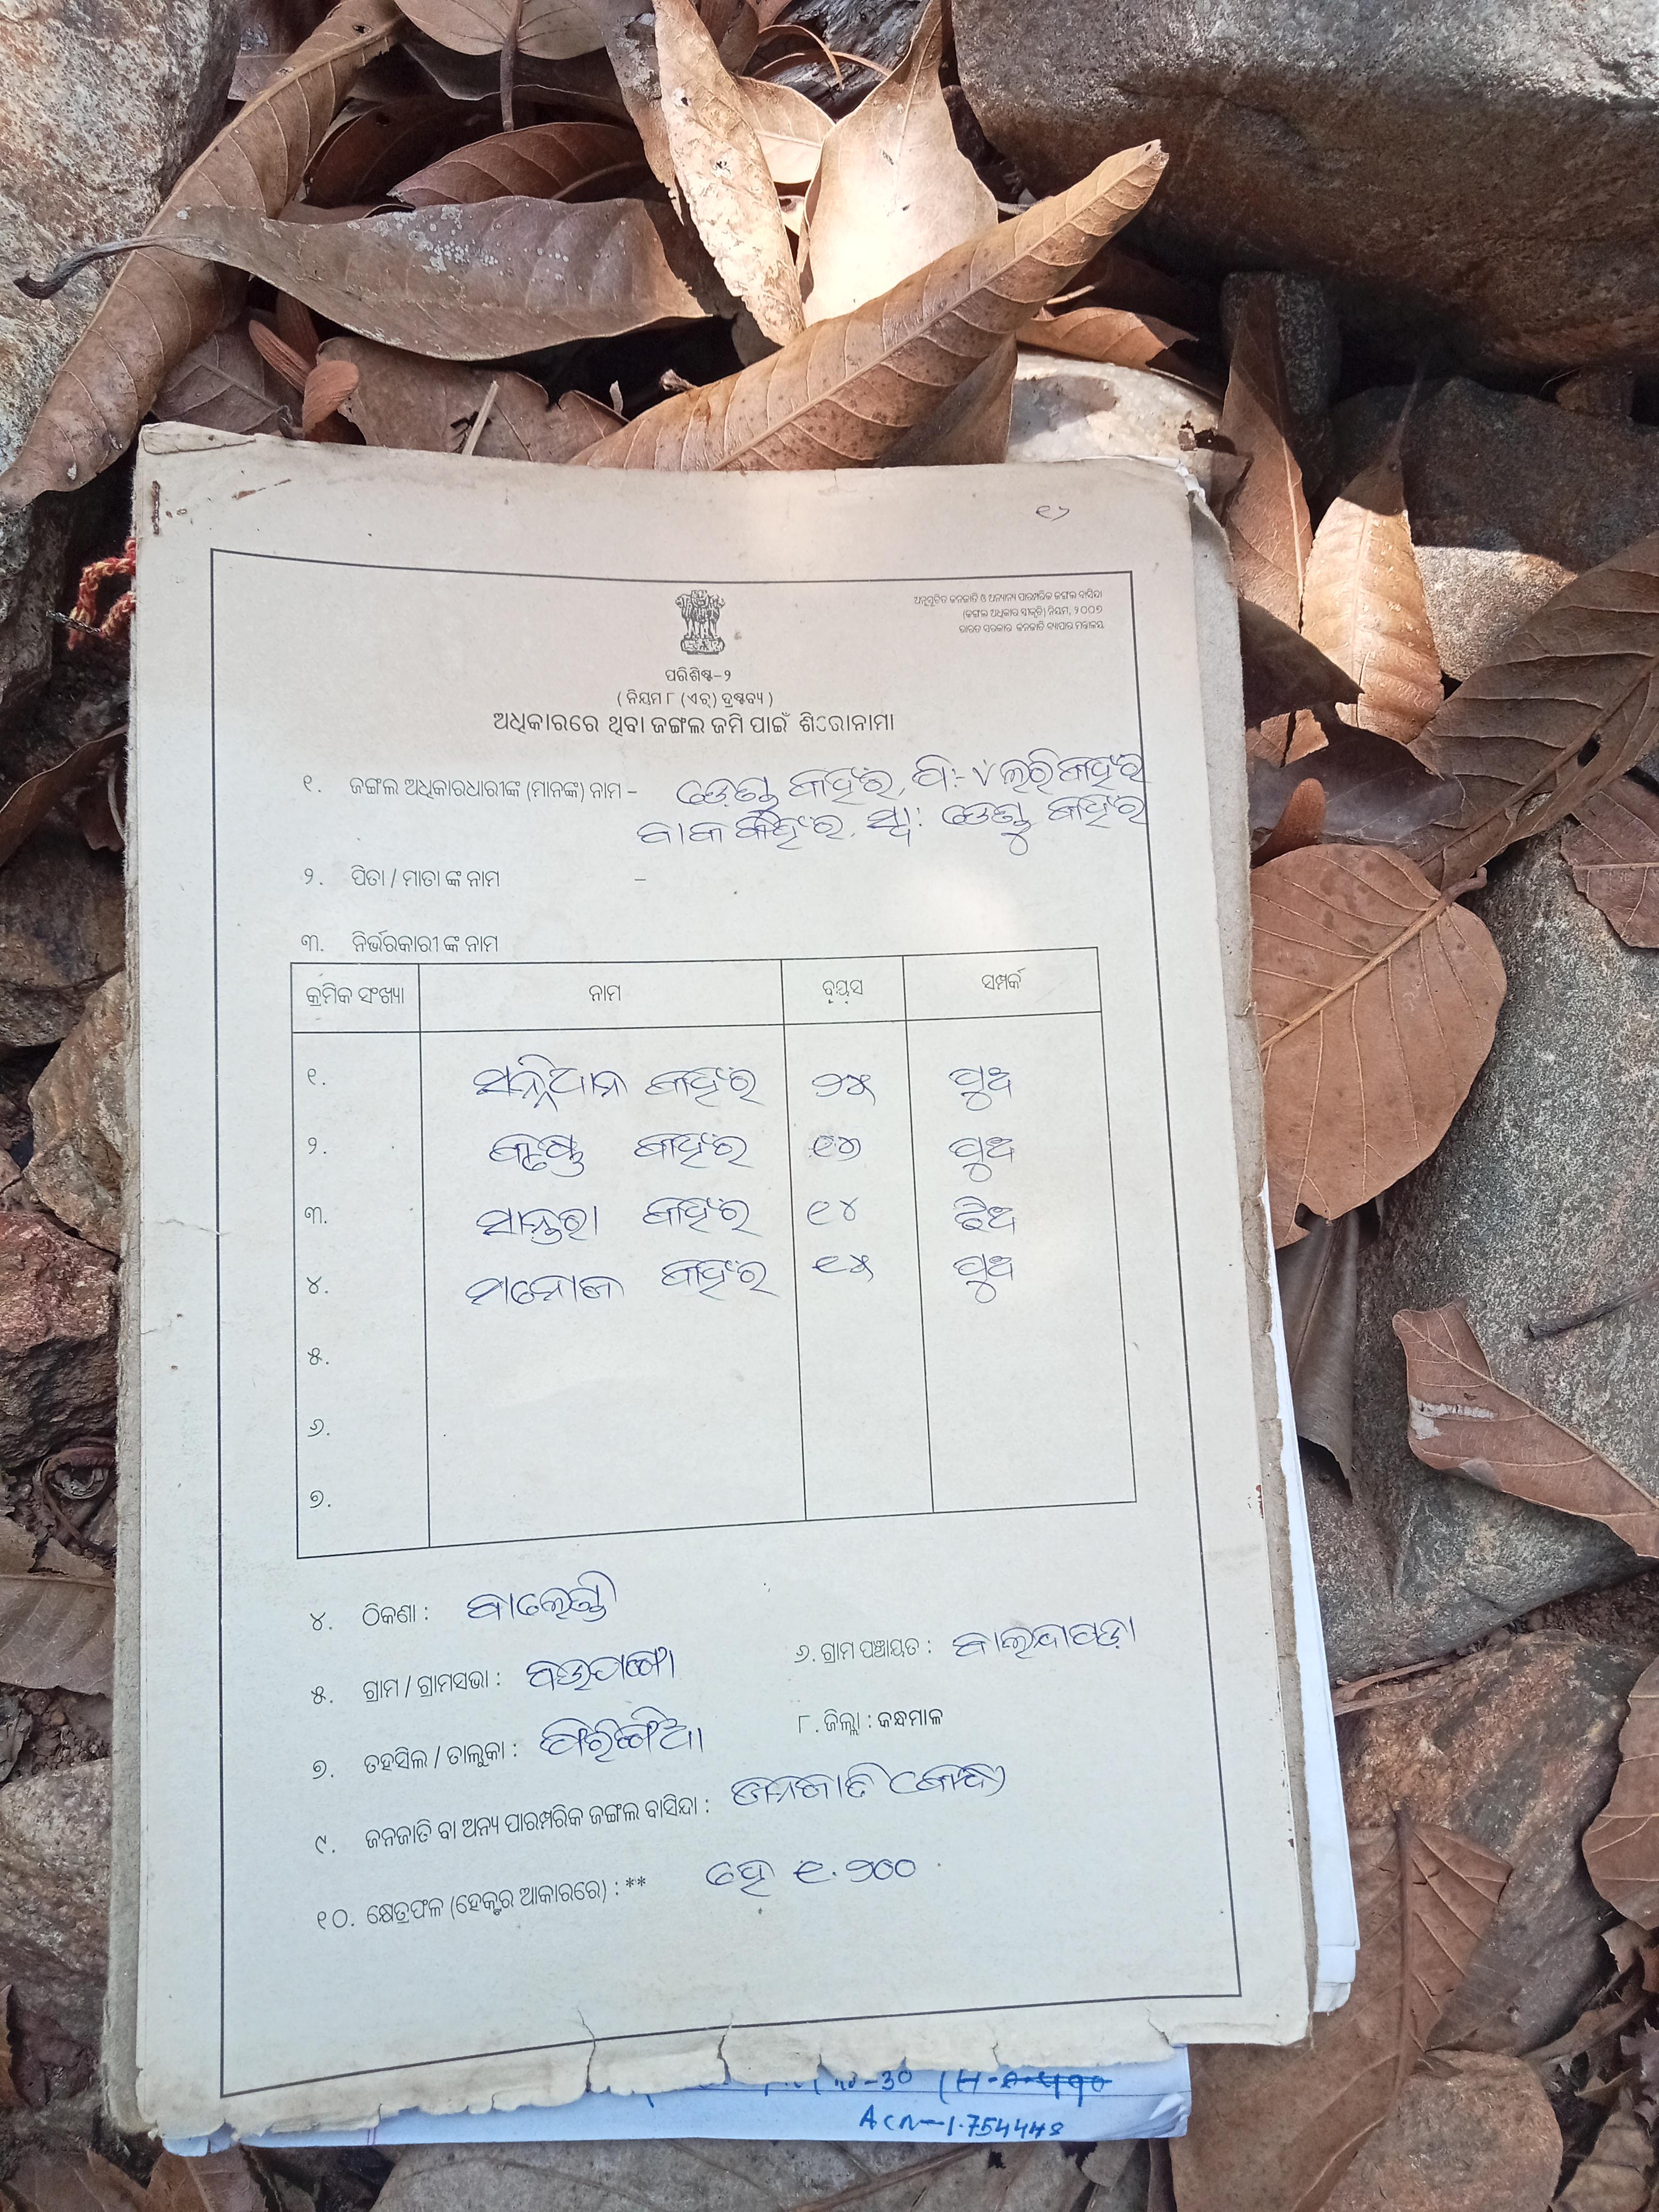 ୧୨
ଅନୁସୂଚିତ ଜନଜାତି ଓ ଅନ୍ୟାନ୍ୟ ପାରମ୍ପରିକ ଜଙ୍ଗଲ ବାସିନ୍ଦା
(ଜଙ୍ଗଲ ଅଧିକାର ସ୍ୱୀକୃତି) ନିୟମ, ୨୦୦୭
ଭାରତ ସରକାର ଜନଜାତି ବ୍ୟାପାର ମନ୍ତ୍ରାଳୟ
ପରିଶିଷ୍ଟ-୨
( ନିୟମ ୮ (ଏଚ୍) ଦ୍ରଷ୍ଟବ୍ୟ )
ଅଧିକାରରେ ଥିବା ଜଙ୍ଗଲ ଜମି ପାଇଁ ଶିରୋନାମା
୧. ଜଙ୍ଗଲ ଅଧିକାରଧାରୀଙ୍କ (ମାନଙ୍କ) ନାମ - କହଁର, ପି:- କହଁର
କହଁର, ସ୍ୱା: କହଁର
୨. ପିତା / ମାତା ଙ୍କ ନାମ -
୩. ନିର୍ଭରକାରୀ ଙ୍କ ନାମ
କ୍ରମିକ ସଂଖ୍ୟା ନାମ ବୟସ ସମ୍ପର୍କ
୧. କହଁର ୨୫ ପୁଅ
୨. କହଁର ପୁଅ
୩. କହଁର ୧୪ ଝିଅ
୪. ମନୋଜ କହଁର ୧୫ ପୁଅ
୫.
୬.
୭.
୪. ଠିକଣା : ବାଲେଣ୍ଡି
୫. ଗ୍ରାମ / ଗ୍ରାମସଭା : ୬. ଗ୍ରାମ ପଞ୍ଚାୟତ : ବାଲନ୍ଦାପଡ଼ା
୭. ତହସିଲ / ତାଲୁକା : ଫିରିଙ୍ଗିଆ ୮. ଜିଲ୍ଲା : କନ୍ଧମାଳ
୯. ଜନଜାତି ବା ଅନ୍ୟ ପାରମ୍ପରିକ ଜଙ୍ଗଲ ବାସିନ୍ଦା : ଜନଜାତି (କନ୍ଧ)
୧୦. କ୍ଷେତ୍ରଫଳ (ହେକ୍ଟର ଆକାରରେ) : ** ହେ ୧.୨୦୦